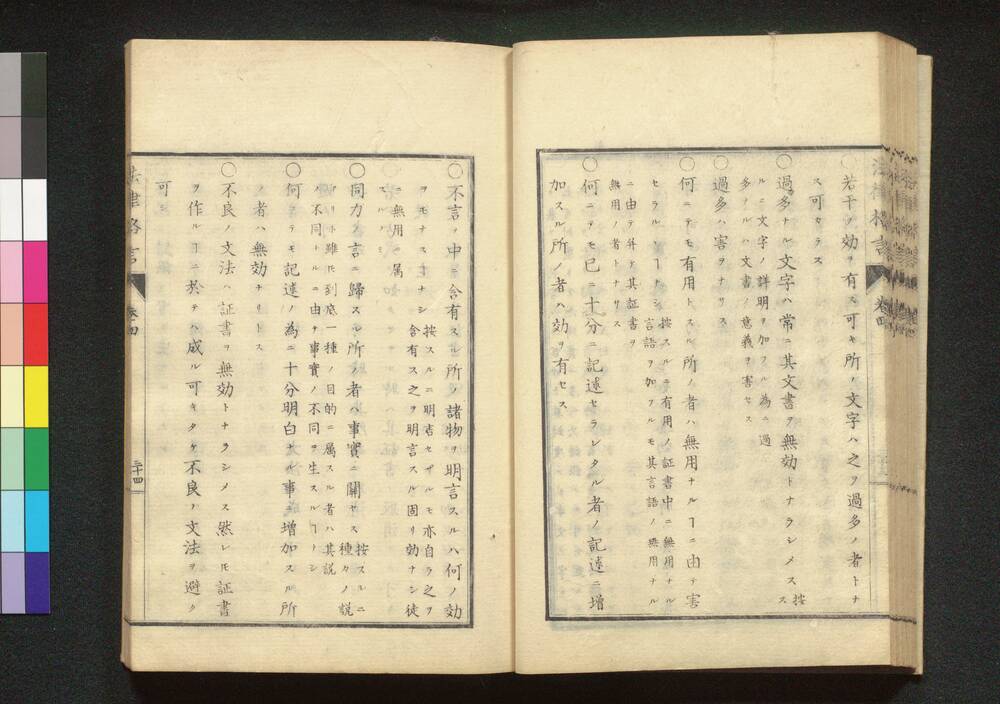 〇若干ノ効ヲ有ス可キ所ノ文字ハ之ヲ過多ノ者トナ
ス可カラス
〇過多ナル文字ハ常ニ其文書ヲ無効トナラシメス
按スルニ文字ノ詳明ヲ加フル為ニ過
多ナルハ文書ノ意義ヲ害セス
〇過多ハ害ヲナサス
〇何ニテモ有用トスル所ノ者ハ無用ナルヿニ由テ害
セラルヽヿナシ
按スルニ有用ノ証書中ニ無用ナル
言語ヲ加フルモ其言語ノ無用ナル
ニ由テ并テ其証書ヲ
無用ノ者トナサス
〇何ニテモ已ニ十分ニ記述セラレタル者ノ記述ニ増
加スル所ノ者ハ効ヲ有セス
〇不言ノ中ニ含有スル所ノ諸物ヲ明言スルハ何ノ効
ヲモナスコナシ
按スルニ明言セザルモ亦自ラ之ヲ
含有ス之ヲ明言スル固リ効ナシ徒
ニ無用ニ属
スルノミ
〇同力ノ言ニ歸スル所ノ者ハ事實ニ關セス
按スルニ種々ノ説
アリト雖𪜈到底一種ノ目的ニ属スル者ハ其説
ノ不同ナルニ由テ事實ノ不同ヲ生スルヿナシ
〇何ニテモ記述ノ為ニ十分明白ナル事ニ増加スル所
ノ者ハ無効ナリトス
〇不良ノ文法ハ証書ヲ無効トナラシメス然レ𪜈証書
ヲ作ルヿニ於テハ成ル可キタケ不良ノ文法ヲ避ク
可シ
法律格言
卷四
三十四